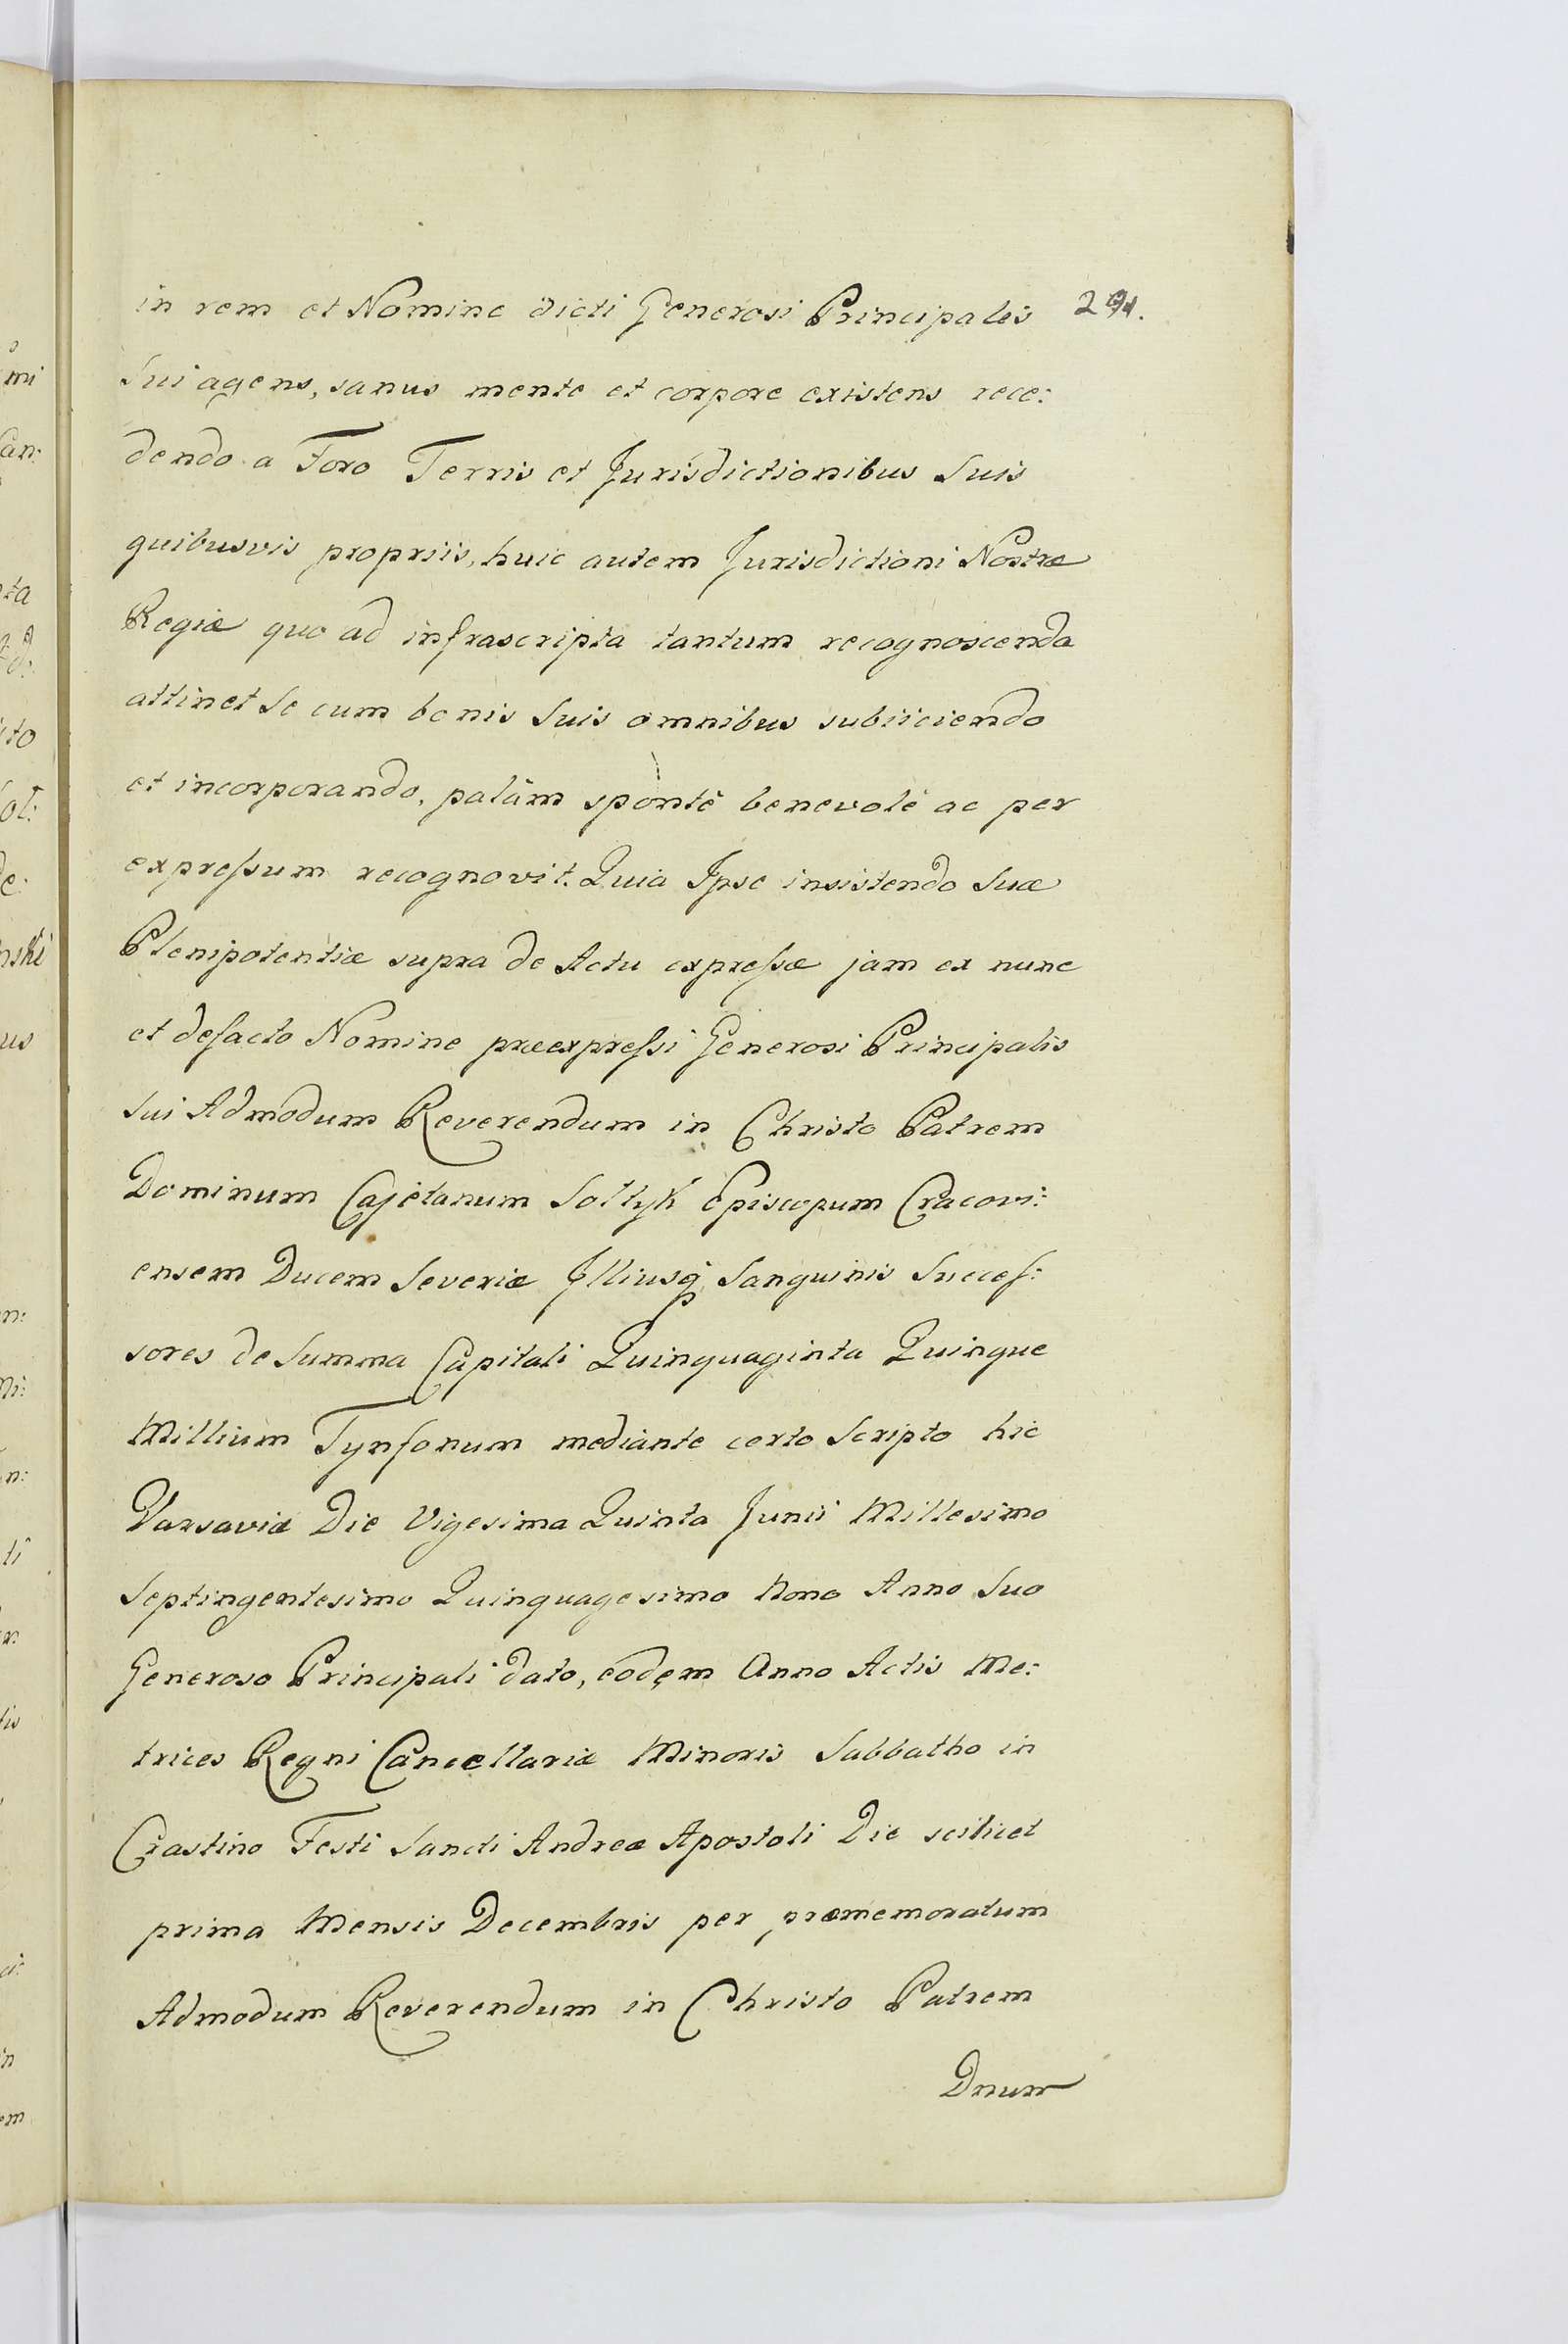 in rem et Nomine dicti Generosi Principalis
Sui agens, sanus mente et corpore existens rece:
dendo a Foro Terris et Jurisdictionibus Suis
quibusvis propriis, huic autem Jurisdictioni Nostræ
Regiæ quo ad infrascripta tantum recognoscenda
attinet Se cum bonis Suis omnibus subiiciendo
et incorporando, palàm spontè benevolè ac per
expressum recognovit. Quia Ipse insistendo Suæ
Plenipotentiæ supra de Actu expressæ jam ex nunc
et defacto Nomine præexpressi Generosi Principalis
Sui Admodum Reverendum in Christo Patrem
Dominum Cajetanum Sołtyk Episcopum Cracovi:
ensem Ducem Severiæ Illiusq Sanguinis Succes:
sores de Summa Capitali Quinquaginta Quinque
Millium Tynfonum mediante certo Scripto hic
Varsaviæ Die Vigesima Quinta Junii Millesimo
Septingentesimo Quinquagesimo Nono Anno Suo
Generoso Principali dato, eodem Anno Actis Me:
trices Regni Cancellariæ Minoris Sabbatho in
Crastino Festi Sancti Andreæ Apostoli Die scilicet
prima Mensis Decembris per præmemoratum
Admodum Reverendum in Christo Patrem
Dnum